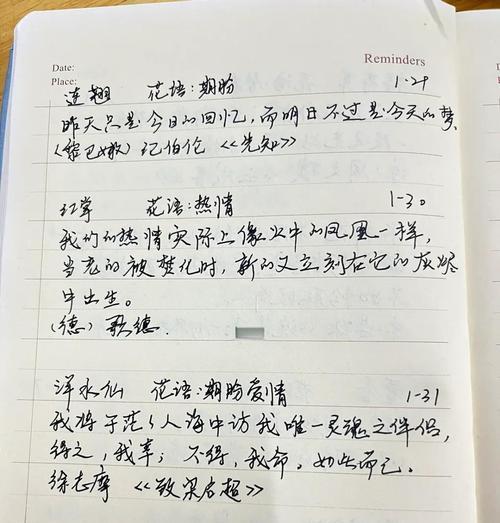 Reminders
Date:
Place:
连翘 花语:期盼 1-29
昨天只是今日的回忆,而明日不过是今天的梦。
(黎巴嫩) 纪伯伦 《先知》
红掌 花语:热情 1-30
我们的热情实际上像火中的凤凰一样,
当老的被焚化时,新的又立刻在它的灰烬
中出生。
(德) 歌德.
洋水仙 花语:期盼爱情 1-31
我将于茫々人海中访我唯一灵魂之伴侣,
得之,我幸;不得,我命,如此而已。
徐志摩 《致梁启超》